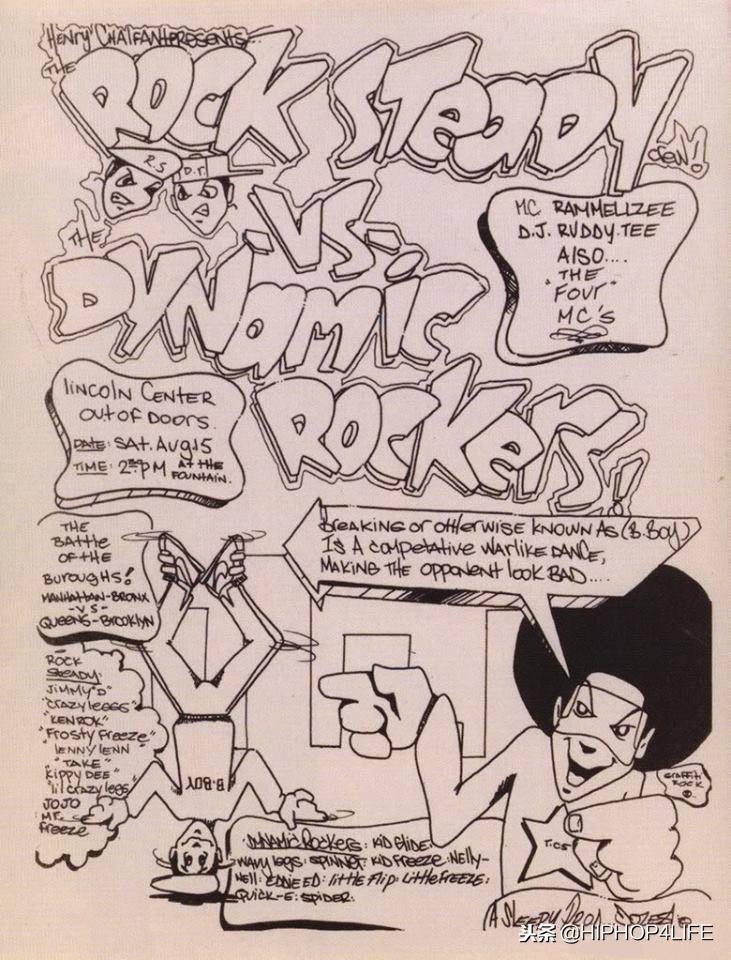 Henry Chalfant presents...
THE
ROCK STEADY
CREW!
R.S
D.R.
-VS-
THE
DYNAMIC
ROCKERS!!
M.C. RAMMELLZEE
D.J. RUDDY.TEE
ALSO....
THE
"FOUR"
MC'S
LINCOLN CENTER
OUT OF DOORS.
DATE: SAT. AUG 15
TIME: 2:00 PM AT THE
FOUNTAIN.
THE
BATTLE
OF THE
BUROUGHS!
MANHATTAN-BRONX
-VS-
QUEENS-BROOKLYN
Breaking or otherwise known as (B.Boy)
Is a competative warlike dance,
making the opponent look bad....
ROCK
STEADY:
JIMMY"D"
"CRAZY LEGGS"
"KEN ROK"
"FROSTY FREEZE"
"LENNY LENN"
"TAKE"
KIPPY DEE"
"lil crazy legs"
JOJO
MR.
FREEZE
B.BOY
GRAFFITI
ROCK
T.C5
DYNAMIC ROCKERS: KID GLIDE:
WAVY LEGS: SPINNER: KID FREEZE: NELLY-
NELL: EDDIE ED: little Flip: Little FREEZE:
QUICK-E: SPIDER:
A SLEEPY PROD.
头条 @HIPHOP4LIFE